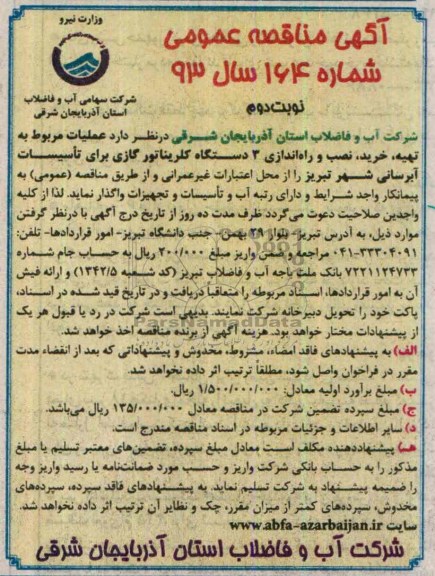 وزارت نیرو
آگهی مناقصه عمومی
شماره ۱۶۴ سال ۹۳
شرکت سهامی آب و فاضلاب
استان آذربایجان شرقی
نوبت دوم
شرکت آب و فاضلاب استان آذربایجان شـــرقی درنظر دارد عملیات مربوط به
تهیه، خرید، نصب و راه‌اندازی ۳ دســـتگاه کلریناتور گازی برای تأسیســـات
آبرسانی شـــهر تبریز را از محل اعتبارات غیرعمرانی و از طریق مناقصه (عمومی) به
پیمانکار واجد شـرایط و دارای رتبه آب و تأسیسات و تجهیزات واگذار نماید. لذا از کلیه
واجدین صلاحیت دعوت می‌گردد ظرف مدت ده روز از تاریخ درج آگهی با درنظر گرفتن
موارد ذیل، به آدرس تبریز- بلوار ۲۹ بهمن- جنب دانشگاه تبریز- امور قراردادها- تلفن:
۰۴۱-۳۳۳۰۴۰۹۱ مراجعه و ضمن واریز مبلغ ۲۰۰/۰۰۰ ریال به حساب جام شـماره
۷۲۲۱۱۲۴۷۳۳ بانک ملت باجه آب و فاضلاب تبریز (کد شـعبه ۱۳۴۲/۵) و ارائه فیش
آن به امور قراردادها، اسـناد مربوطه را متعاقباً دریافت و در تاریخ قید شـده در اسـناد،
پاکت خود را تحویل دبیرخانه شرکت نمایند. بدیهی است شرکت در رد یا قبول هر یک
از پیشنهادات مختار خواهد بود. هزینه آگهی از برنده مناقصه اخذ خواهد شد.
الف) به پیشنهادهای فاقد امضاء، مشروط، مخدوش و پیشنهاداتی که بعد از انقضاء مدت
مقرر در فراخوان واصل شود، مطلقاً ترتیب اثر داده نخواهد شد.
ب) مبلغ برآورد اولیه معادل: ۱/۵۰۰/۰۰۰/۰۰۰ ریال.
ج) مبلغ سپرده تضمین شرکت در مناقصه معادل ۱۳۵/۰۰۰/۰۰۰ ریال می‌باشد.
د) سایر اطلاعات و جزئیات مربوطه در اسناد مناقصه مندرج است.
هـ) پیشنهاددهنده مکلف اسـت معادل مبلغ سپرده، تضمین‌های معتبر تسلیم یا مبلغ
مذکور را به حساب بانکی شرکت واریز و حسب مورد ضمانت‌نامه یا رسید واریز وجه
را ضمیمه پیشنهاد به شرکت تسلیم نماید. به پیشنهادهای فاقد سپرده، سپرده‌های
مخدوش، سپرده‌های کمتر از میزان مقرر، چک و نظایر آن ترتیب اثر داده نخواهد شد.
سایت www.abfa-azarbaijan.ir
شرکت آب و فاضلاب استان آذربایجان شرقی